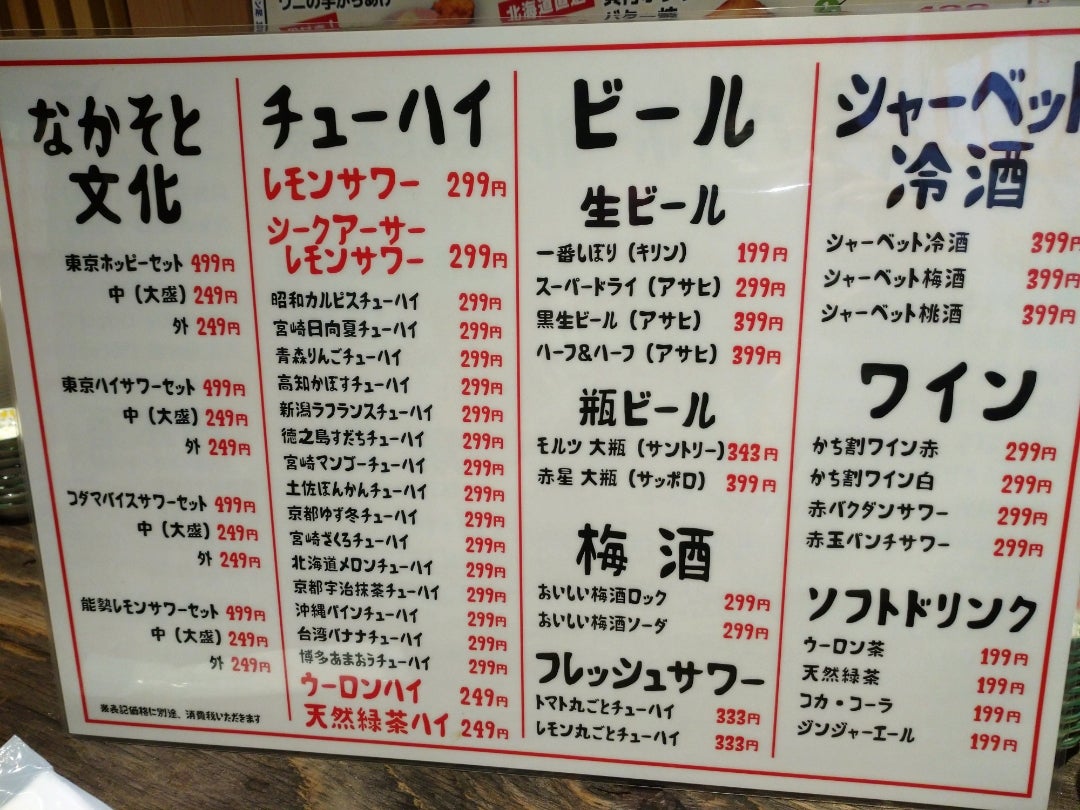 なかそと
文化
東京ホッピーセット 499円
中（大盛）249円
外 249円
東京ハイサワーセット 499円
中（大盛）249円
外 249円
コダマバイスサワーセット 499円
中（大盛）249円
外 249円
能勢レモンサワーセット 499円
中（大盛）249円
外 249円
※表記価格に別途、消費税いただきます
チューハイ
レモンサワー 299円
シークアーサー
レモンサワー 299円
昭和カルピスチューハイ 299円
宮崎日向夏チューハイ 299円
青森りんごチューハイ 299円
高知かぼすチューハイ 299円
新潟ラフランスチューハイ 299円
徳之島すだちチューハイ 299円
宮崎マンゴーチューハイ 299円
土佐ぽんかんチューハイ 299円
京都ゆず冬チューハイ 299円
宮崎ざくろチューハイ 299円
北海道メロンチューハイ 299円
京都宇治抹茶チューハイ 299円
沖縄パインチューハイ 299円
台湾バナナチューハイ 299円
博多あまおうチューハイ 299円
ウーロンハイ 249円
天然緑茶ハイ 249円
ビール
生ビール
一番しぼり（キリン） 199円
スーパードライ（アサヒ） 299円
黒生ビール（アサヒ） 399円
ハーフ&ハーフ（アサヒ） 399円
瓶ビール
モルツ 大瓶（サントリー）343円
赤星 大瓶（サッポロ） 399円
梅酒
おいしい梅酒ロック 299円
おいしい梅酒ソーダ 299円
フレッシュサワー
トマト丸ごとチューハイ 333円
レモン丸ごとチューハイ 333円
シャーベット
冷酒
シャーベット冷酒 399円
シャーベット梅酒 399円
シャーベット桃酒 399円
ワイン
かち割ワイン赤 299円
かち割ワイン白 299円
赤バクダンサワー 299円
赤玉パンチサワー 299円
ソフトドリンク
ウーロン茶 199円
天然緑茶 199円
コカ・コーラ 199円
ジンジャーエール 199円